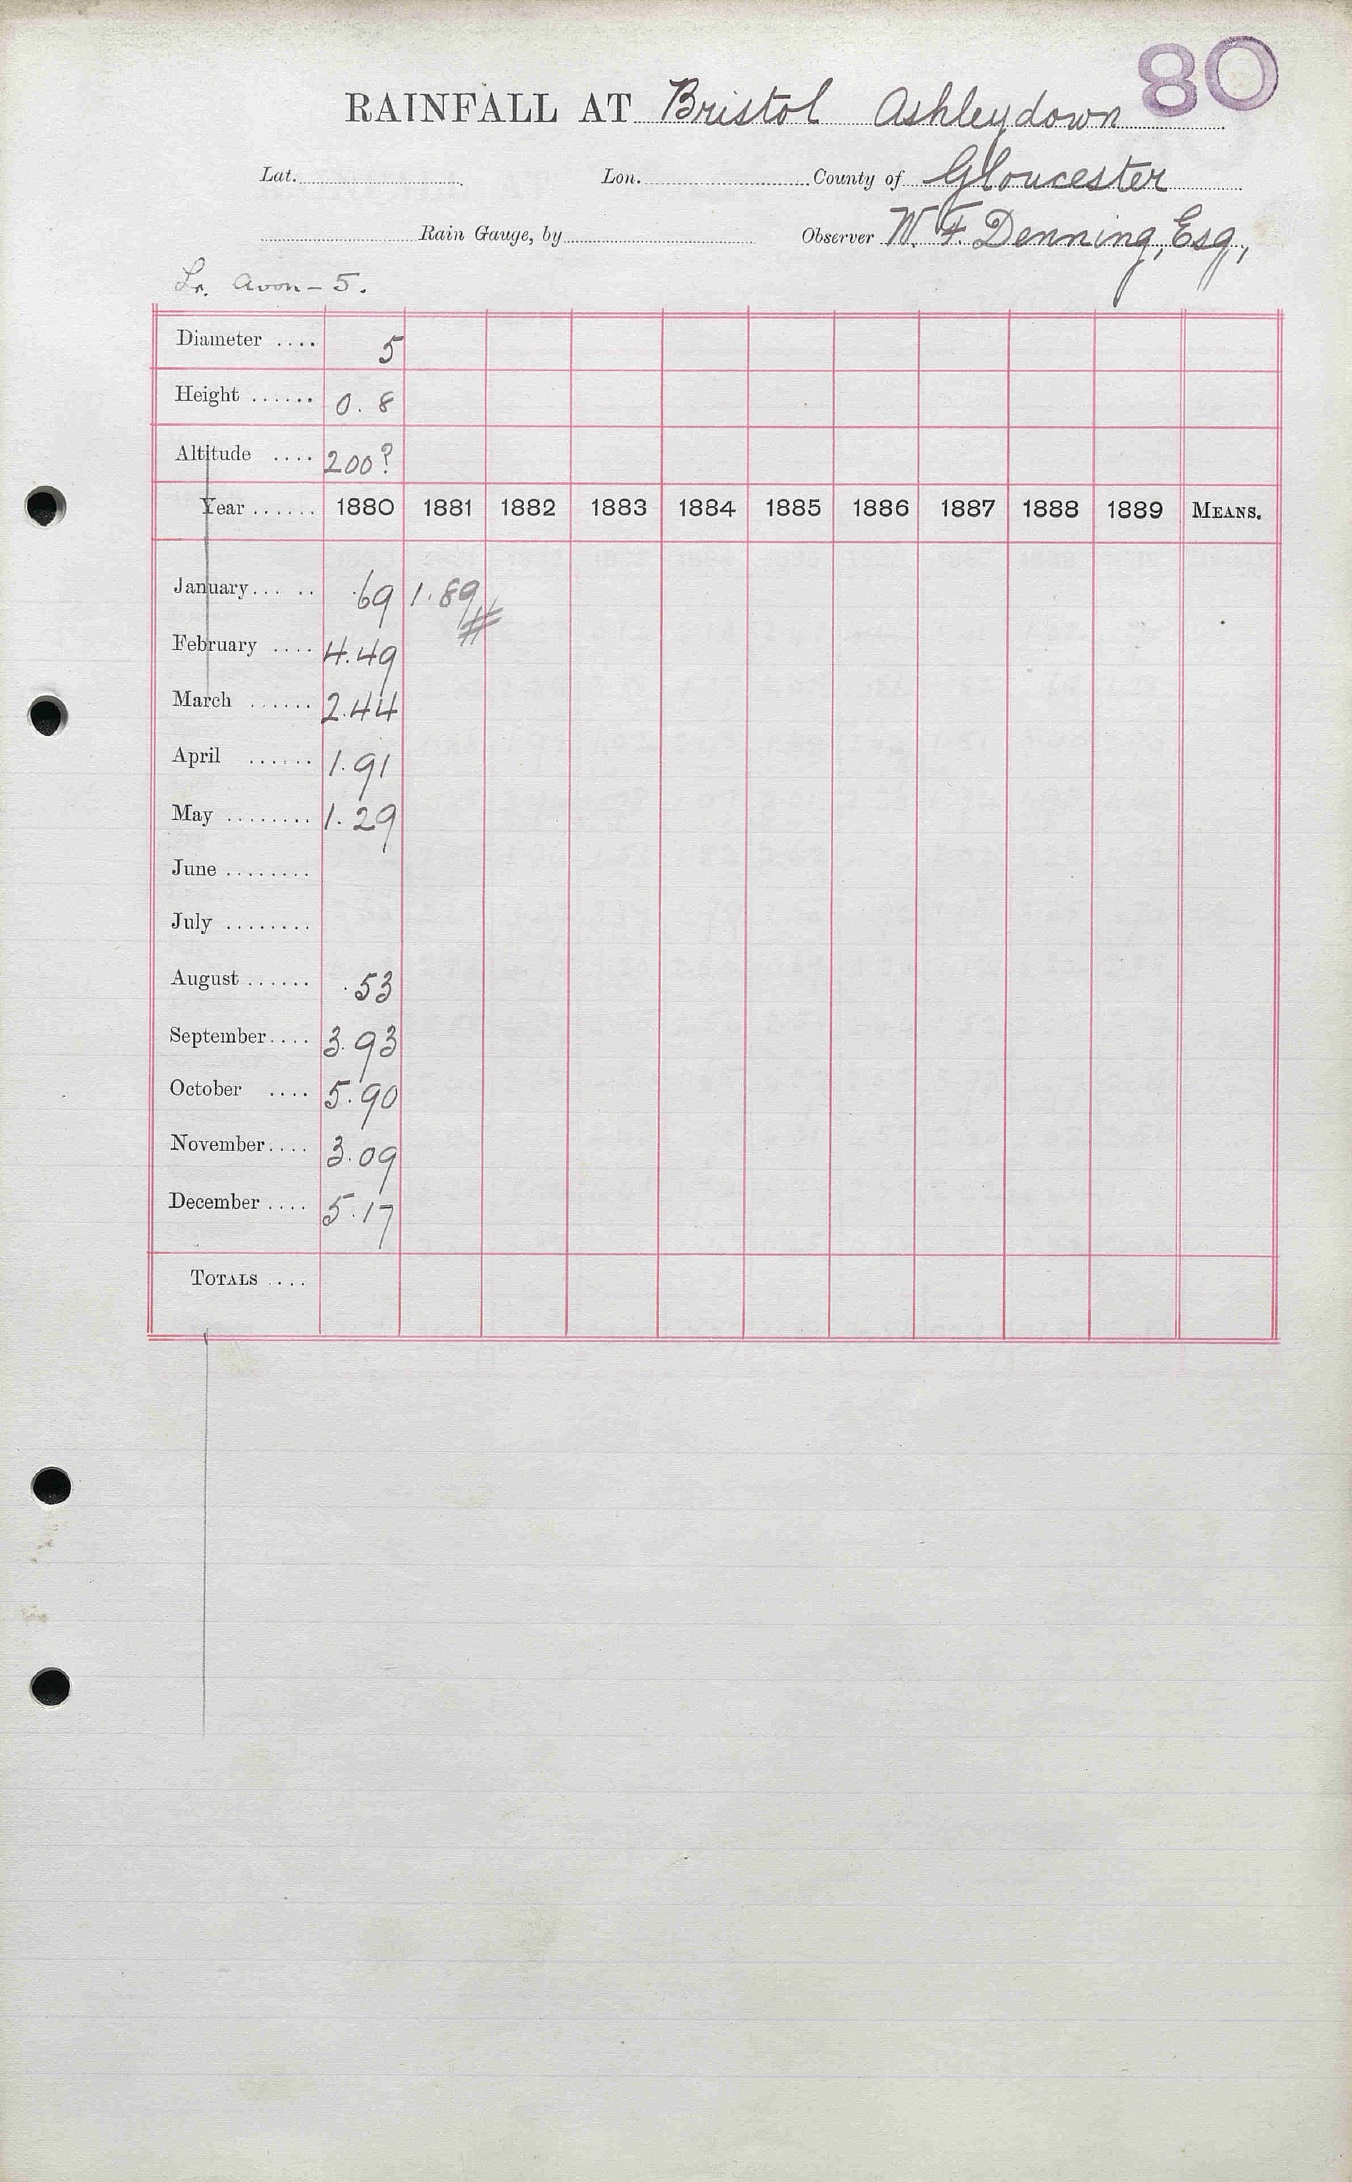 80
RAINFALL AT Bristol Ashleydown
Lat. Lon. County of Gloucester
Rain Gauge, by Observer W. F. Denning, Esq.,
Lr. Avon - 5.
Diameter .... 5
Height ...... 0.8
Altitude .... 200?
Year ...... 1880 1881 1882 1883 1884 1885 1886 1887 1888 1889 MEANS.
January... .. .69 1.89 #
February .... 4.49
March ...... 2.44
April ...... 1.91
May ........ 1.29
June ........
July ........
August ...... .53
September.... 3.93
October .... 5.90
November.... 3.09
December .... 5.17
TOTALS ....